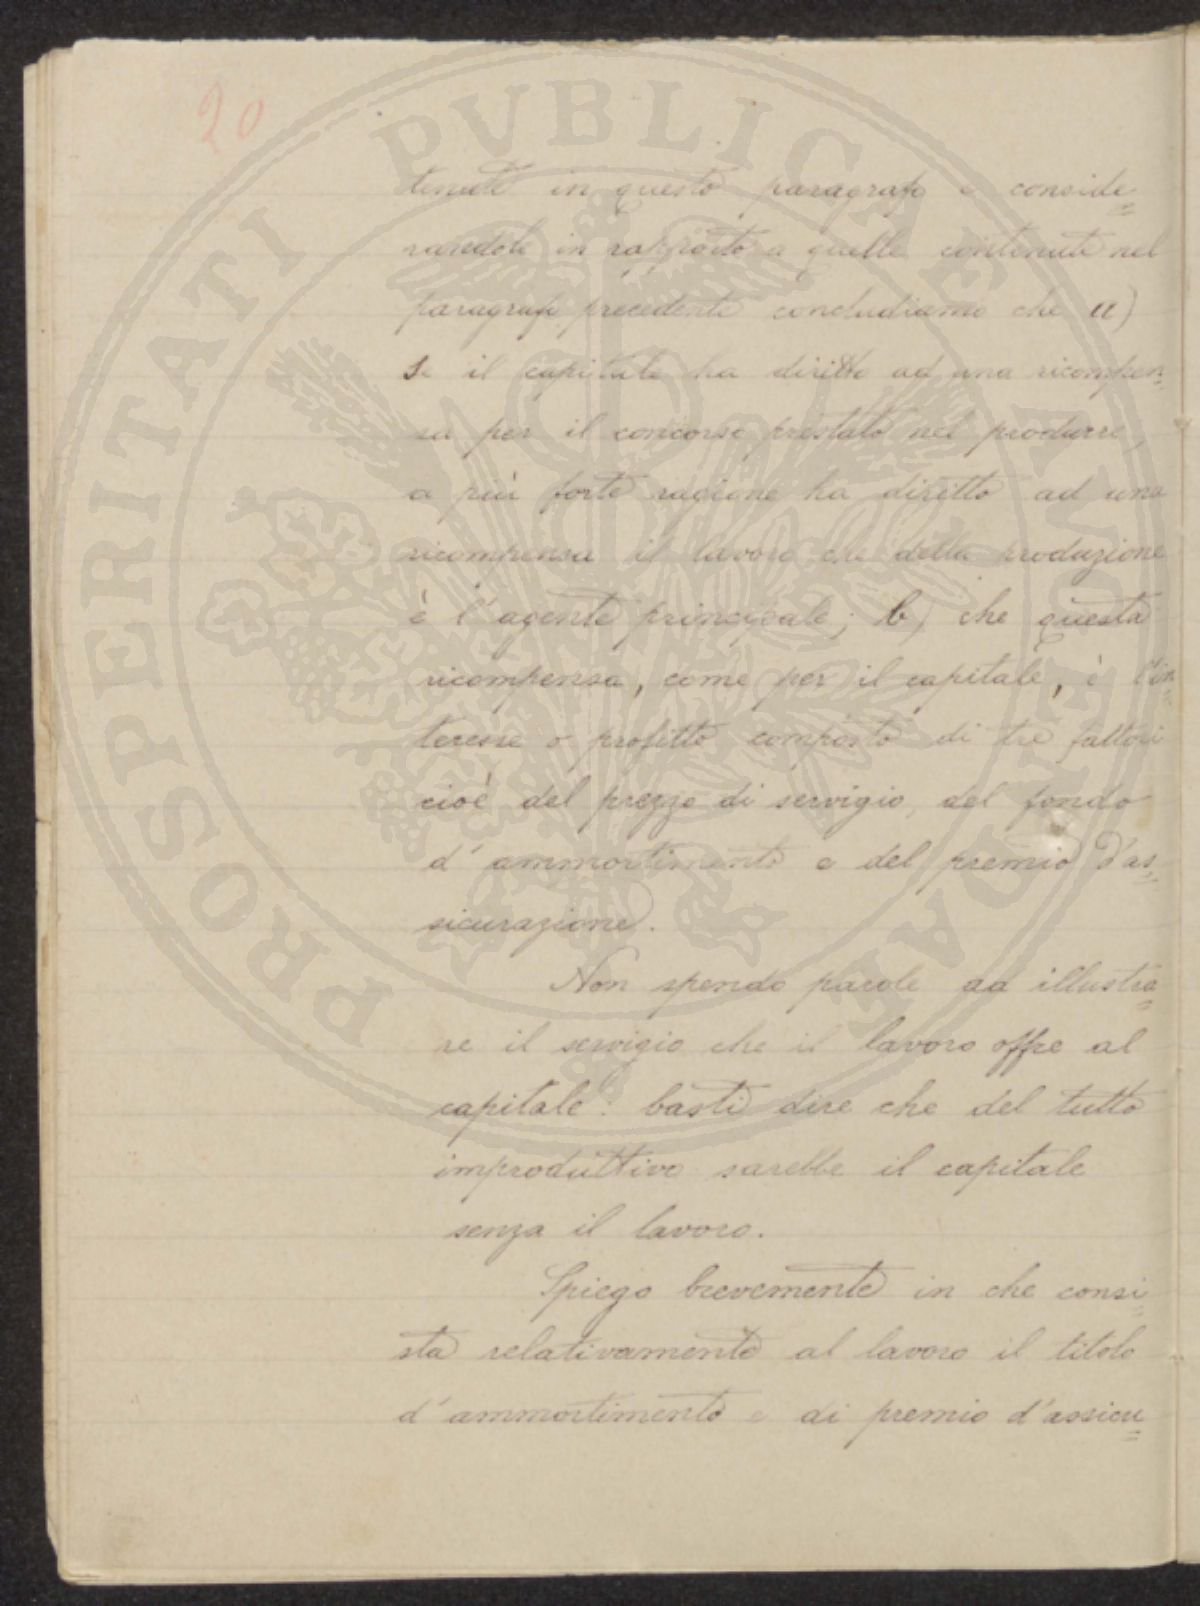 20
tenute in questo paragrafo e conside=
randole in rapporto a quelle contenute nel
paragrafo precedente concludiamo che a)
Se il capitale ha diritto ad una ricompen=
sa per il concorso prestato nel produrre,
a più forte ragione ha diritto ad una
ricompensa il lavoro che della produzione
è l'agente principale; b) che questa
ricompensa, come per il capitale, è l'in=
teresse o profitto composto di tre fattori
cioè del prezzo di servigio, del fondo
d'ammortimento e del premio d'as=
sicurazione.
Non spendo parole ad illustra=
re il servigio che il lavoro offre al
capitale: basti dire che del tutto
improduttivo sarebbe il capitale
senza il lavoro.
Spiego brevemente in che consi=
sta relativamente al lavoro il titolo
d'ammortimento e di premio d'assicu=
PROSPERITATI PVBLICAE AVGENDAE